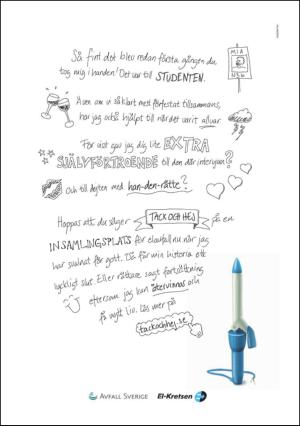 Så fint det blev redan första gången du
tog mig i handen! Det var till STUDENTEN.
MIA
N3A
Även om vi såklart mest förfestat tillsammans,
har jag också hjälpt till när det varit allvar.
För visst gav jag dig lite EXTRA
SJÄLVFÖRTROENDE till den där intervjun?
Och till dejten med han-den-rätte?
Hoppas att du säger TACK OCH HEJ på en
INSAMLINGSPLATS för elavfall nu när jag
har svalnat för gott. Då får min historia ett
lyckligt slut. Eller rättare sagt fortsättning
eftersom jag kan återvinnas och
få nytt liv. Läs mer på
tackochhej.se
AVFALL SVERIGE
El-Kretsen